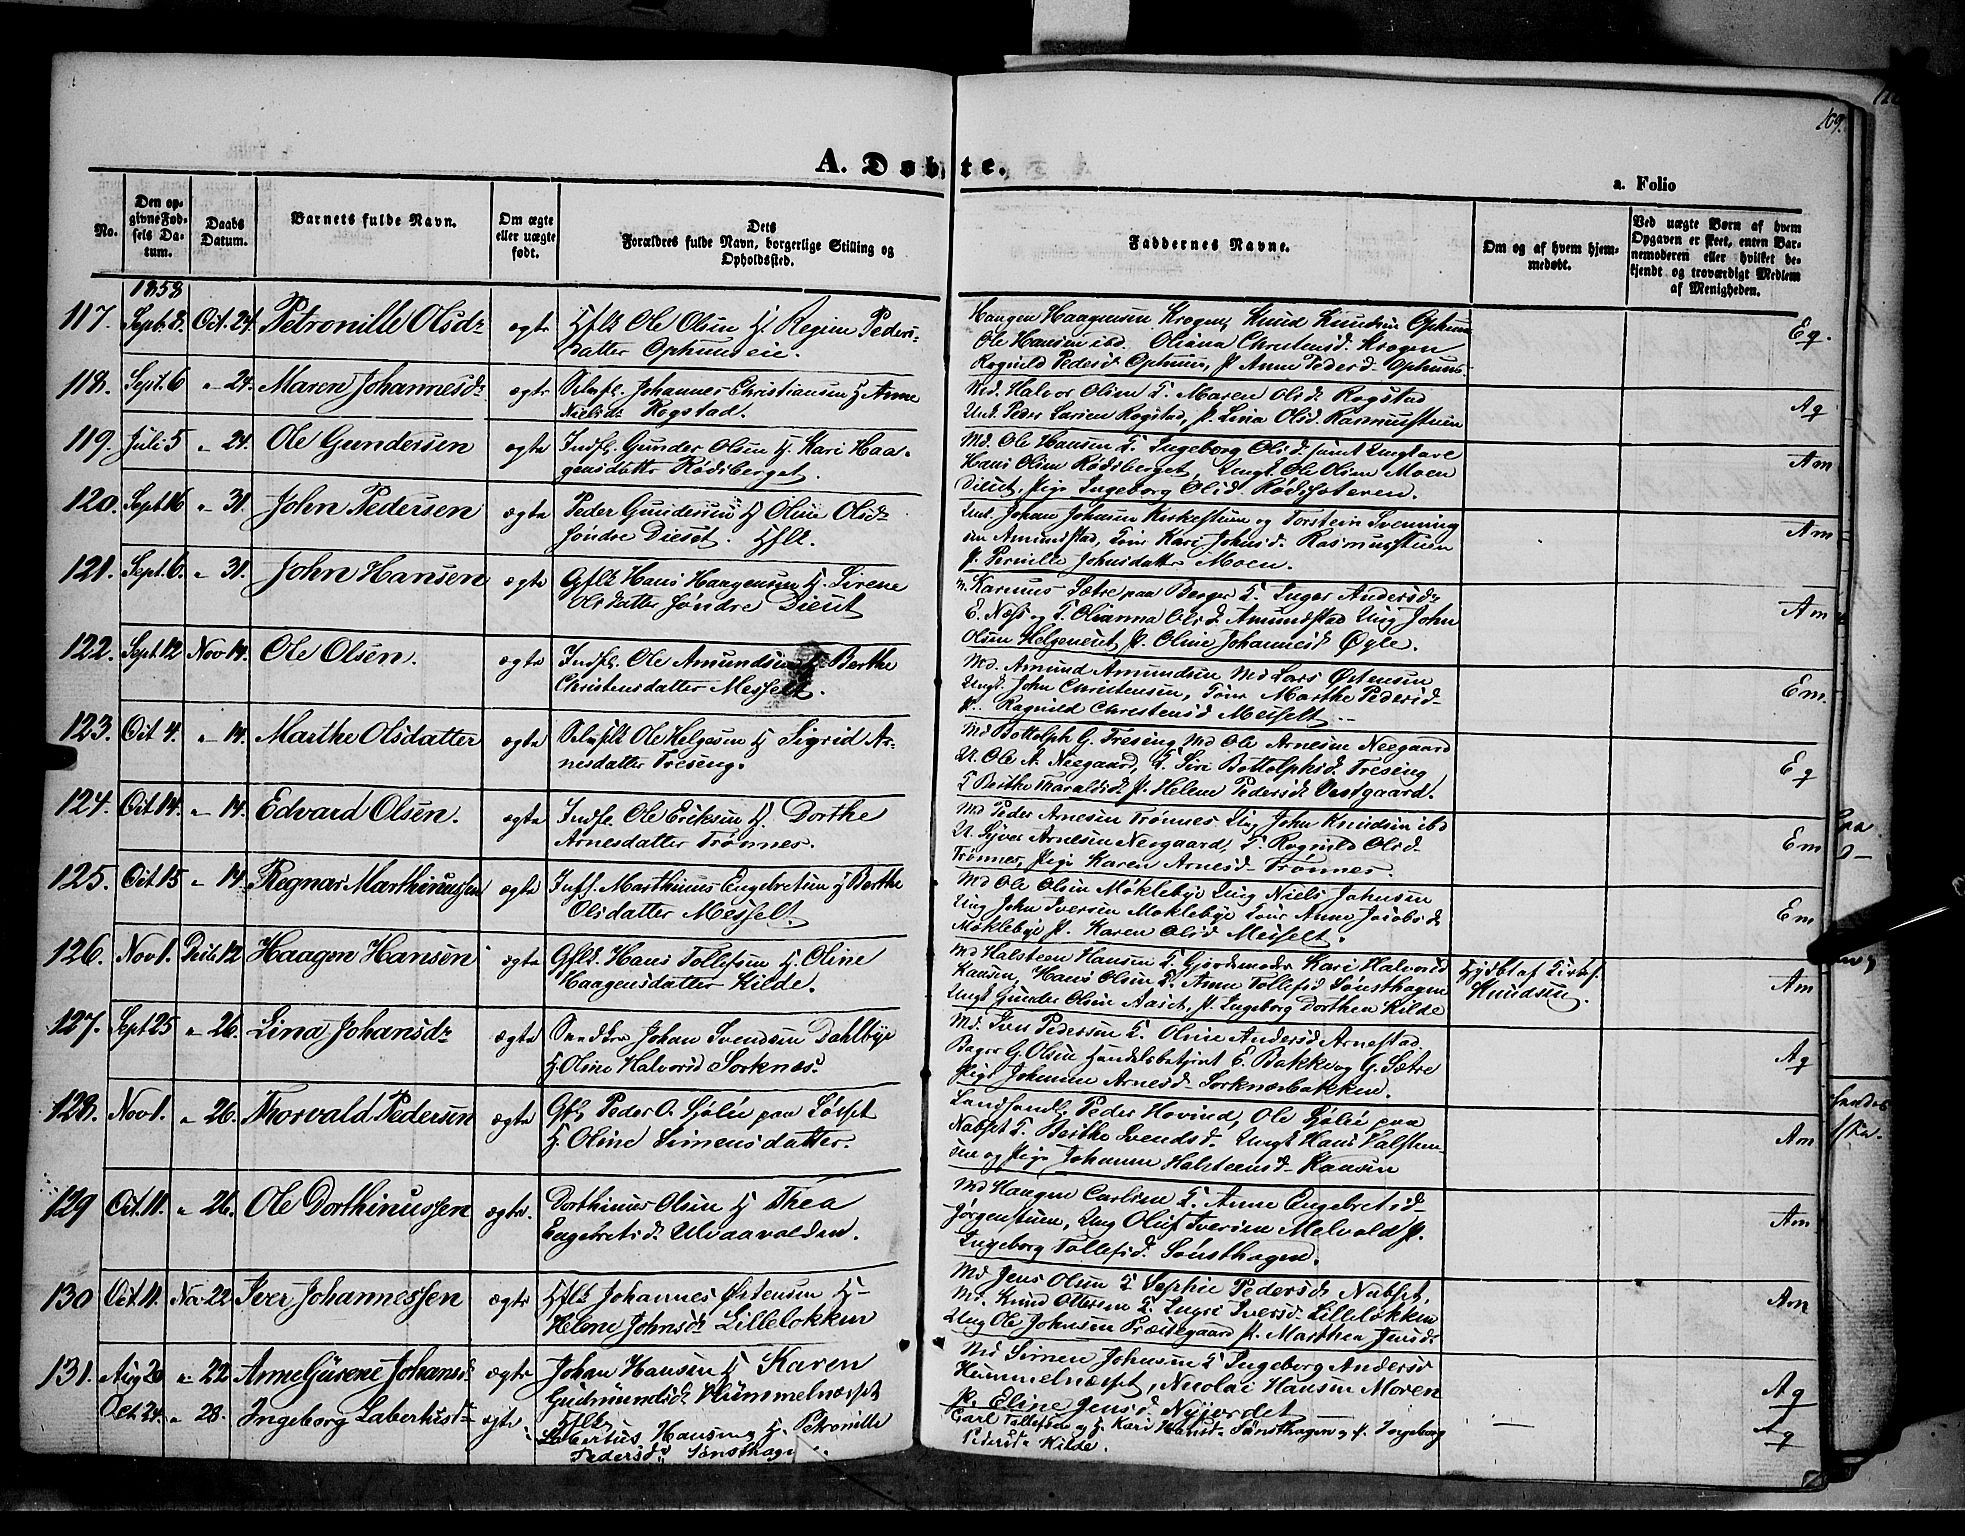 109.
A. Døbte.
a. Folio
No.
Den op-
givne Fød-
sels Da-
tum.
Daabs
Datum.
Barnets fulde Navn.
Om ægte
eller uægte
født.
Dets
Forældres fulde Navn, borgerlige Stilling og
Opholdssted.
Faddernes Navne.
Om og af hvem hjem-
medøbt.
Ved uægte Børn af hvem
Opgaven er skeet, enten Bar-
nemoderen eller hvilket be-
kjendt og troværdigt Medlem
af Menigheden.
1858
117. Sept. 8. Oct. 24. Petronille Olsdr ægte Hflk Ole Olsen H. Regine Peders-
datter Ophuuseie.
Haagen Haagensen Krogen, Knud Knudsen Ophuus
Ole Hansen ibd. Oliana Christensd. Krogen
Ragnild Pedersd Ophuus, P. Anne Pedersd Ophuus
Eq.
118. Sept. 6 " 24. Maren Johannesd: ægte Johannes Christiansen H Anne
Nielsdr Rogstad.
Md. Halvor Olsen T. Maren Olsd. Rogstad
Unk. Peder Larsen Rogstad, P. Lina Olsd. Rasmusstuen
Aq
119. Juli 5 " 24. Ole Gundersen ægte Indfl. Gunder Olsen H. Kari Haa-
gensdatter Rødsberget.
Md. Ole Hansen T. Ingeborg Olsd. samt Ungkare
Hans Olsen Rødsberget, Ungk. Ole Olsen Moen
Diesut, Pige Ingeborg Olsd. Rødsoteren.
Am
120. Sept 16 " 31. John Pedersen ægte Peder Gundersen H Oline Olsdr
Søndre Dieset. Hflk.
Unk. Johan Johnsen Kirkestuen og Torstein Svenning
sen Amundstad, Kari Johnsd. Rasmusstuen
P. Pernille Johnsdatter Moen.
Am
121. Sept. 6. " 31. John Hansen ægte Gflk Hans Haagensen H. Sirene
Olsdatter Søndre Diesut
Rasmus Sætre paa Berger T. Inger Andersdr
E. Næss og T. Olianna Olsd. Amundstad Ung John
Olsen Helgeneset, P. Oline Johannesd Øgle.
Am
122. Sept 12 Nov 14. Ole Olsen. ægte Indfl. Ole Amundsen H Berthe
Christensdatter Messelt.
Md. Amund Amundsen Md Lars Østensen
Ungk. John Christensen, Marthe Pedersd-
P. Ragnild Christensd Messelt
Em.
123. Oct 4. " 14. Marthe Olsdatter ægte Ole Helgesen H Sigrid Ar-
nesdatter Treseng.
Md Bottolph G. Treseng Md Ole Arnesen Neegaard
U. Ole A. Neegaard, T. Siri Bottolphsd. Treseng
T Berthe Tharaldsd P. Helene Pedersd Vestgaard.
Eq
124. Oct 14. " 14. Edvard Olsen. ægte Indfl. Ole Eriksen H. Dorthe
Arnesdatter Trønnes.
Md Peder Arnesen Trønnes. Ung John Knudsen ibd
U. Syver Arnesen Neegaard, T Ragnild Olsd-
Trønnes, Pige Karen Arnesd- Trønnes.
Em
125. Oct 15 " 14. Regnar Marthinussen ægte Marthinus Engebretsen H Berthe
Olsdatter Messelt.
Md Ole Olsen Møklebye Ung Niels Johnsen
Ung John Iversen Møklebye Anne Jacobsd
Møklebye P. Karen Olsd Messelt.
Em
126. Nov 1. Dcbr 12 Haagen Hansen ægte Gflk. Hans Tollefsen H. Oline
Haagensdatter Kilde.
Md Halsteen Hansen T. Gjordemoder Kari Halvorsd
Kaasen, Hans Olsen T. Anne Tollefsd Sønsthagen
Ungk Gunder Olsen Aaset, P. Ingeborg Dorthea Kilde
Hjdbt af Knudsen.
Am
127. Sept 25 " 26. Lina Johansdr ægte Johan Svendsen Dahlbye
H. Oline Halvorsd Sorknæs.
Md. Iver Pedersen T. Oline Andersd Arnestad.
Bager G. Olsen Handelsbetjent E. Bakke og G. Sætre
Pige Johanne Arnesd- Sorknæsbakken.
Aq
128. Nov 1. " 26. Thorvald Pedersen ægte Gfl Peder O. Sjølie paa Løsset
H. Oline Simensdatter.
Landhandl. Peder Hovind, Ole Sjølie paa
Nabset T. Berthe Svendsd. Ungk Hans Halsteen-
sen og Pige Johanne Halsteensd Kaasen
Am
129 Oct. 11. " 26. Ole Dorthinussen ægte. Dorthinus Olsen H Thea
Engebretsd. Ulvaavolden.
Md Haagen Carlsen T. Anne Engebretsd-
Jørgenstuen, Ung Oluf Iversen Melvold P.
Ingeborg Tollefsd. Sønsthagen.
Am
130 Oct. 11. Nov 22 Iver Johannessen ægte Hflk Johannes Østensen H-
Helene Johnsd Lilleløkken
Md Jens Olsen T Sophie Pedersd Nabset,
Md. Knud Ottersen T. Ingri Iversd. Lilleløkken
Ung Ole Johnsen Præstegaard P. Marthea Jensd.
Am
131. Aug 20 " 22 Anne Gurene Johansd ægte Johan Hansen H Karen
Gudmundsd Hummelnæsset
Md Simen Johnsen T Ingeborg Andersd
Hummelnæsset, Nicolai Hansen Moren
P. Eline Jensd Nyjordet
Aq
Oct 24. " 28. Ingeborg Labertusdr ægte Hflk
Labertus Hansen H. Petronille
Pedersd. Sønsthagen.
Carl Tollefsen og H. Kari Hansd Sønsthagen og P. Ingeborg
Pedersd Kilde.
Aq